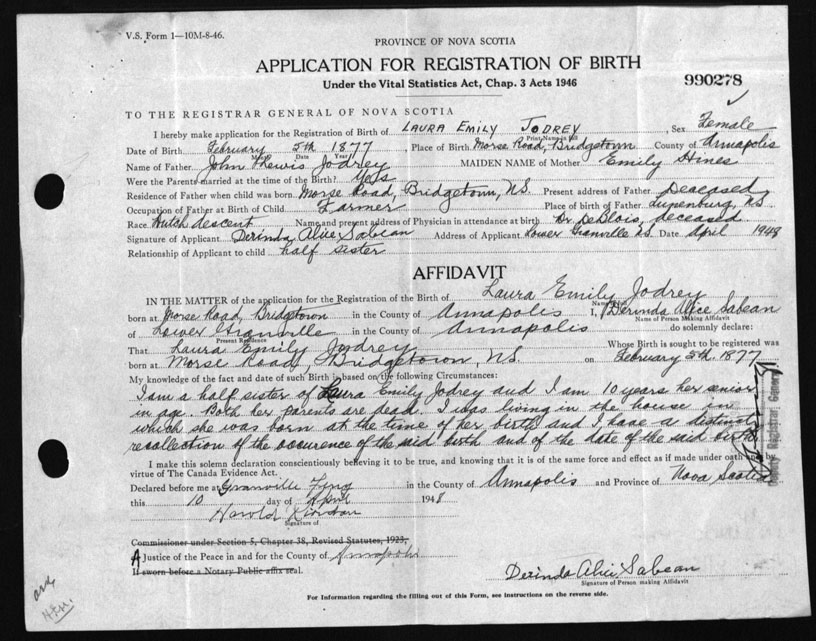 V.S. Form 1—10M-8-46.
PROVINCE OF NOVA SCOTIA
APPLICATION FOR REGISTRATION OF BIRTH
Under the Vital Statistics Act, Chap. 3 Acts 1946
990278
TO THE REGISTRAR GENERAL OF NOVA SCOTIA
I hereby make application for the Registration of Birth of LAURA EMILY JODREY, Sex Female
Print Name in full
Date of Birth February 5th 1877, Place of Birth Morse Road, Bridgetown County of Annapolis
Month Date Year
Name of Father John Lewis Jodrey MAIDEN NAME of Mother Emily Hines
Were the Parents married at the time of the Birth? Yes
Residence of Father when child was born Morse Road, Bridgetown, N.S. Present address of Father Deceased
Occupation of Father at Birth of Child Farmer Place of birth of Father Lunenburg, N.S.
Race Dutch descent Name and present address of Physician in attendance at birth Dr DeBlois, deceased
Signature of Applicant Derinda Alice Sabean Address of Applicant Lower Granville N.S. Date April 1948
Relationship of Applicant to child half sister
AFFIDAVIT
IN THE MATTER of the application for the Registration of the Birth of Laura Emily Jodrey
Name in full
born at Morse Road, Bridgetown in the County of Annapolis I, Derinda Alice Sabean
Name of Person Making Affidavit
of Lower Granville in the County of Annapolis do solemnly declare:
Present Residence
That Laura Emily Jodrey Whose Birth is sought to be registered was
born at Morse Road, Bridgetown, N.S. on February 5th, 1877
My knowledge of the fact and date of such Birth is based on the following Circumstances:
I am a half sister of Laura Emily Jodrey and I am 10 years her senior
in age. Both her parents are dead. I was living in the house in
which she was born at the time of her birth and I have a distinct
recollection of the occurence of the said birth and of the date of the said birth
I make this solemn declaration conscientiously believing it to be true, and knowing that it is of the same force and effect as if made under oath and by
virtue of The Canada Evidence Act.
Declared before me at Granville Ferry in the County of Annapolis and Province of Nova Scotia
this 10 day of April 1948
Harold
Signature of
Commissioner under Section 5, Chapter 38, Revised Statutes, 1923,
A Justice of the Peace in and for the County of Annapolis
If sworn before a Notary Public affix seal.
Derinda Alice Sabean
Signature of Person making Affidavit
For Information regarding the filling out of this Form, see instructions on the reverse side.
Registrar General